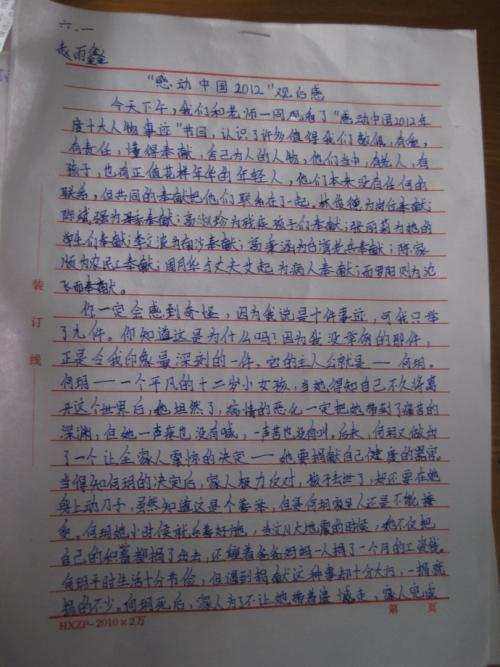 六.一
赵雨鑫
“感动中国2012”观后感
今天下午,我们和老师一同观看了“感动中国2012年
度十大人物事迹”节目,认识了许多值得我们敬佩,有爱,
有责任,懂得奉献,自己为人的人物,他们当中,有老人,有
孩子,也有正值花样年华的年轻人,他们本来没有任何的
联系,但共同的奉献把他们联系在了一起,林俊德为岗位奉献;
陈斌强为母亲奉献;高淑珍为残疾孩子们奉献;张丽莉为她的
学生们奉献;李文波为南沙奉献;高秉涵为台湾老兵奉献;陈家
顺为农民工奉献;周月华与丈夫艾起为病人奉献;而罗阳则为沈
飞而奉献。
你一定会感到奇怪,因为我说是十件事迹,可我只举
了九件。你知道这是为什么吗?因为我没举例的那件,
正是令我印象最深刻的一件。它的主人公就是——何玥。
何玥——一个平凡的十二岁小女孩,当她得知自己不久将离
开这个世界后,她坦然了,病情的恶化一定把她带到了痛苦的
深渊,但她一声疼也没有喊,一声苦也没有叫。后来,何玥又做出
了一个让全家人震惊的决定——她要捐献自己健康的器官。
当得知何玥的决定后,家人极力反对,孩子去世了,却还要在她
身上动刀子,虽然知道这是个善举,但是何玥家里人还是不能接
受。何玥她小时侯就乐善好施,当汶川大地震的时候,她不仅把
自己的积蓄都捐了出去,还缠着爸爸妈妈一人捐了一个月的工资钱。
何玥平时生活十分节俭,但遇到捐献这种事却十分大方,一捐就
捐的不少。何玥死后,家人为了不让她带着遗憾走,家人完成
第 页
装
订
线
HXZP-2010×2万